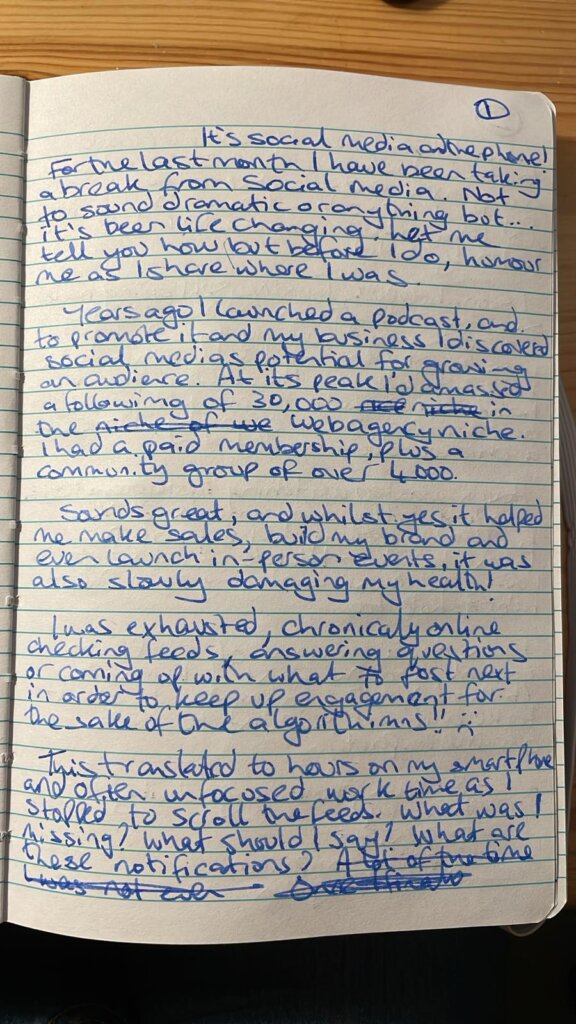 1
It's social media on the phone!
For the last month I have been taking
a break from Social media. Not
to sound dramatic or anything but...
it's been life changing. Let me
tell you how but before I do, humour
me as I share where I was.
Years ago I launched a podcast, and
to promote it and my business I discovered
social medias potential for growing
an audience. At its peak I'd amassed
a following of 30,000 niche in
the niche of we web agency niche.
I had a paid membership, plus a
community group of over 4,000.
Sounds great, and whilst yes it helped
me make sales, build my brand and
even launch in-person events, it was
also slowly damaging my health!
I was exhausted, chronicaly online
checking feeds, answering questions
or coming up with what to post next
in order to keep up engagement for
the sake of the algorithimns!! :(
This translated to hours on my smartphone
and often unfocused work time as I
stopped to scroll the feeds. What was I
missing? What should I say? What are
these notifications? A lot of the time
I was not even